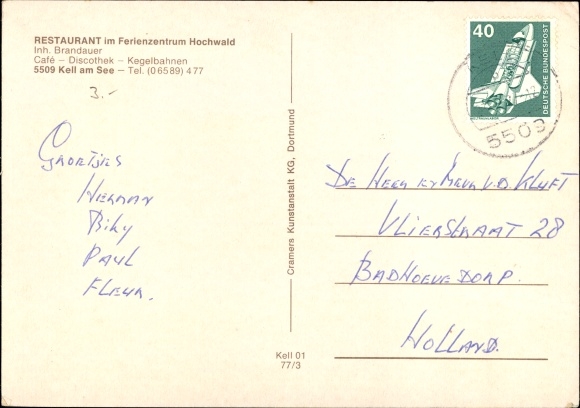 RESTAURANT im Ferienzentrum Hochwald
Inh. Brandauer
Café – Discothek – Kegelbahnen
5509 Kell am See – Tel. (06589) 477
3.-
Groetjes
Herman
Paul
Fleur.
Cramers Kunstanstalt KG, Dortmund
Kell 01
77/3
40
DEUTSCHE BUNDESPOST
5509
De Heer en Mevr v.d. Kluft
Vlierstraat 28
Badhoevedorp.
Holland.